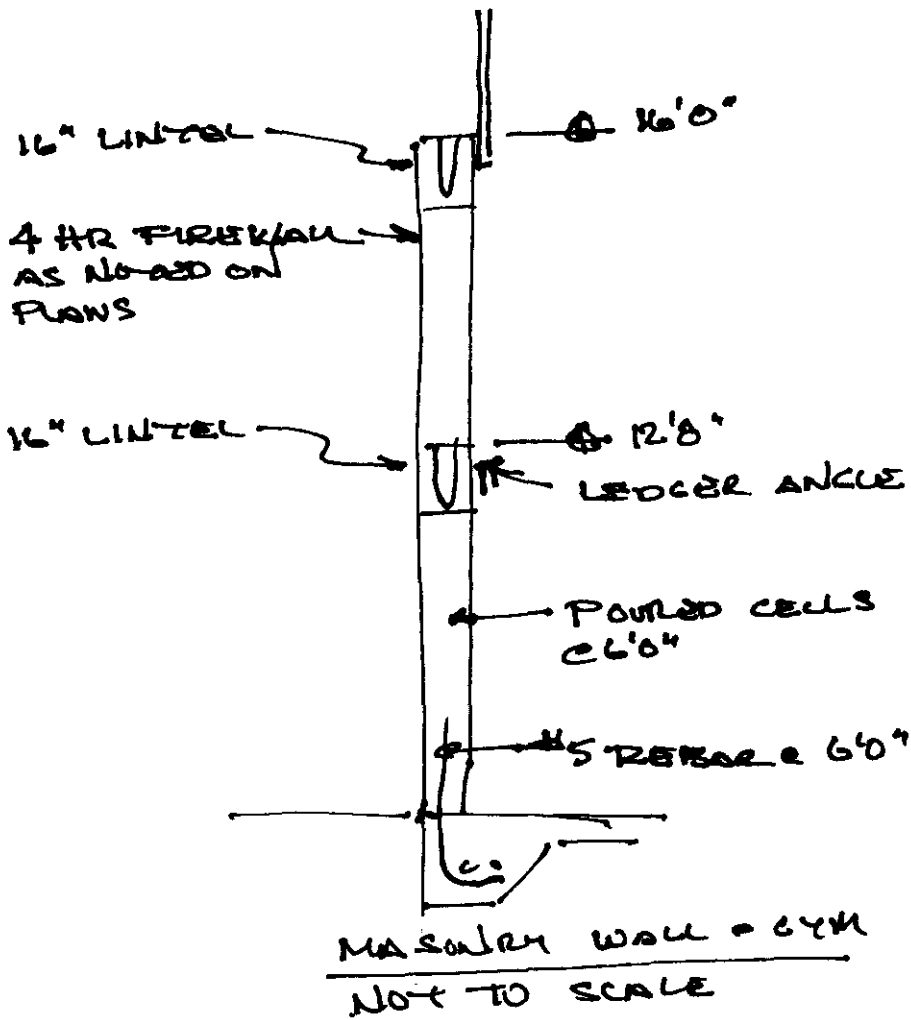 16" LINTEL
16'0"
4 HR FIREWALL
AS NOTED ON
PLANS
16" LINTEL
12'8"
LEDGER ANGLE
POURED CELLS
@ 6'0"
#5 REBAR @ 6'0"
MASONRY WALL @ GYM
NOT TO SCALE